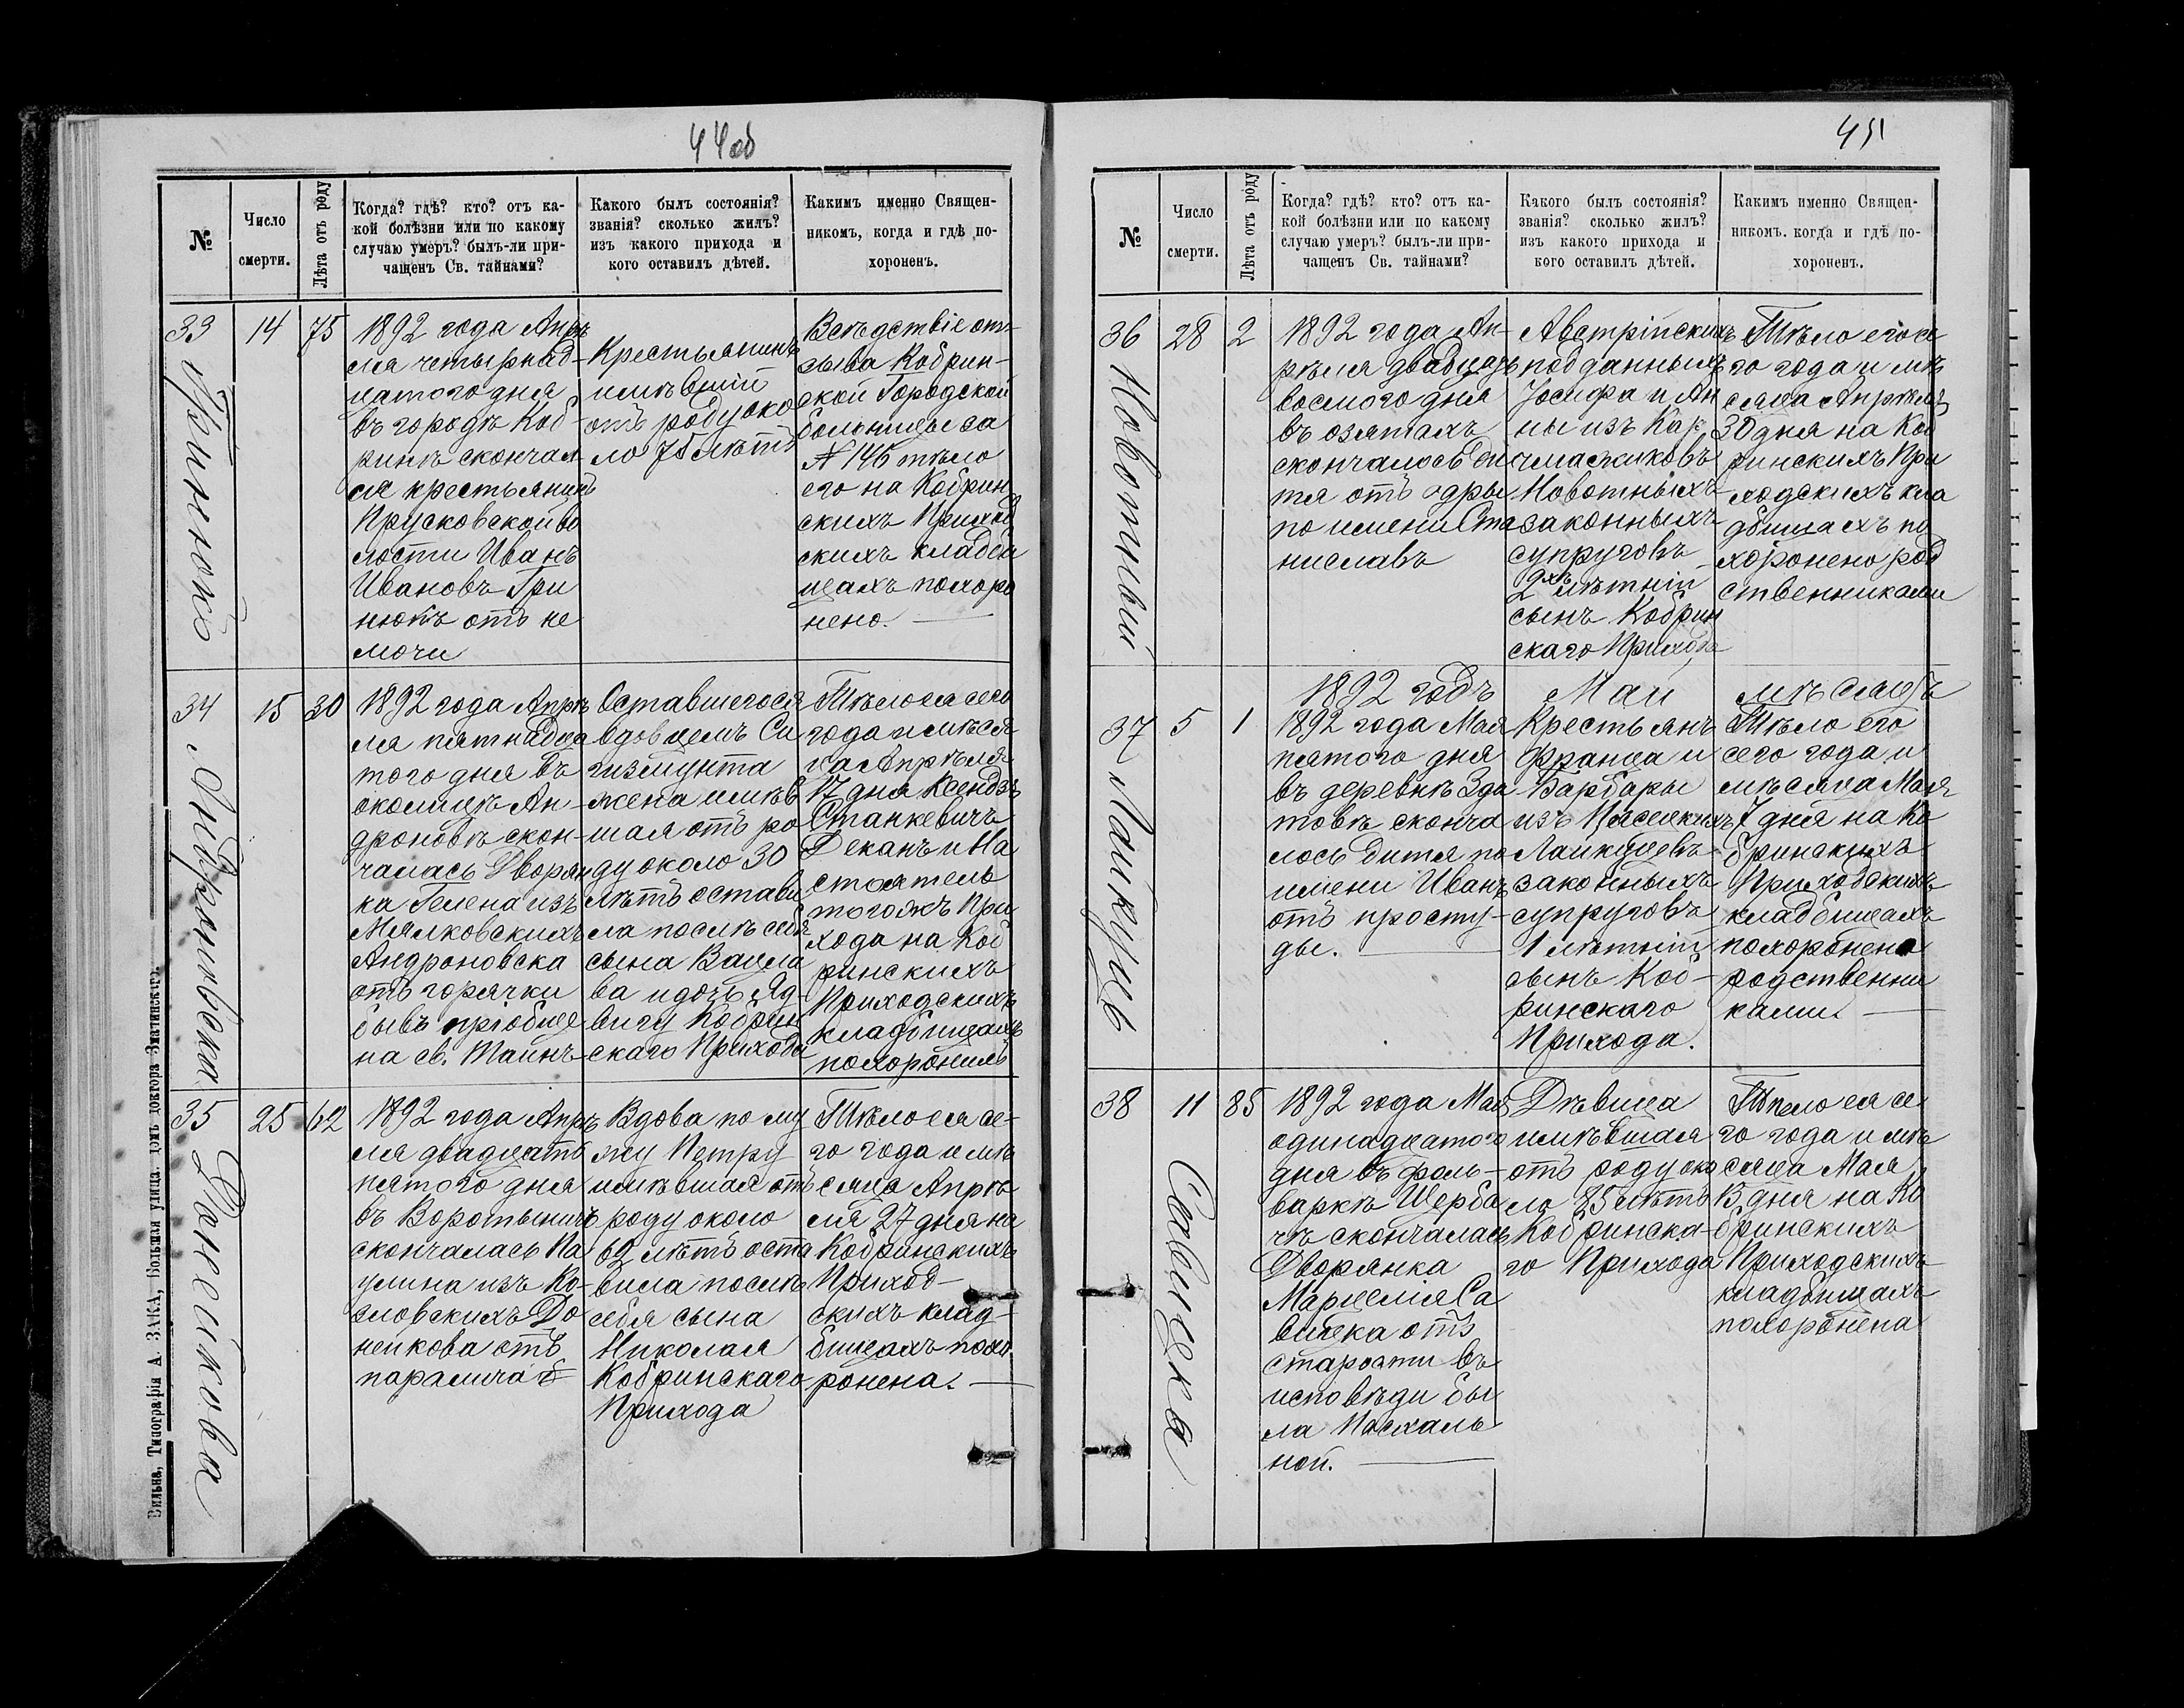 44об
№
Число
смерти.
Лѣта отъ роду
Когда? гдѣ? кто? отъ ка-
кой болѣзни или по какому
случаю умеръ? былъ-ли при-
чащенъ Св. тайнами?
Какого былъ состоянія?
званія? сколько жилъ?
изъ какого прихода и
кого оставилъ дѣтей.
Какимъ именно Священ-
никомъ, когда и гдѣ по-
хороненъ.
33
Гринюкъ
14
75
1892 года Апрѣ
ля четырнад-
цатого дня
въ городѣ Коб-
ринѣ скончал
ся крестьянинъ
Прусковской во
лости Иванъ
Ивановъ Гри
нюкъ отъ не
мочи
Крестьянинъ
имѣвшій
отъ роду око
ло 75 лѣтъ
Вслѣдствіе от-
зыва Кобрин-
ской Городской
больницы за
№ 146 тѣло
его на Кобрин
скихъ Приход
скихъ кладби
щахъ похоро
нено.
34
Андроновска
15
30
1892 года Апрѣ
ля пятнадца
того дня въ
околицѣ Ан-
дроновѣ скон-
чалась Дворян
ка Гелена изъ
Мялковскихъ
Андроновска
отъ горячки
бывъ пріобще
на св. Таинъ
Оставшегося
вдовцемъ Си
гизмунта
жена имѣв
шая отъ ро
ду около 30
лѣтъ остави
ла послѣ себя
сына Вацла
ва и дочь Яд-
вигу Кобрин
скаго Прихода
Тѣло ея сего
года и мѣся
ца Апрѣля
17 дня Ксендзъ
Станкевичъ
Деканъ и На
стоятель
тогожъ При
хода на Коб
ринскихъ
Приходскихъ
кладбищахъ
похоронилъ
35
Донейкова
25
62
1892 года Апрѣ
ля двадцать
пятого дня
въ Воротыничѣ
скончалась Па
улина изъ Ко-
зловскихъ До
нейкова отъ
паралича
Вдова по му
жу Петру
имѣвшая отъ
роду около
62 лѣтъ оста
вила послѣ
себя сына
Николая
Кобринскаго
Прихода
Тѣло ея се-
го года и мѣ
сяца Апрѣ
ля 27 дня на
Кобринскихъ
Приход-
скихъ клад-
бищахъ похо
ронена.
Вильна, Типографія А. ЗАКА, Большая улица, домъ доктора Знатинскаго.
45
№
Число
смерти.
Лѣта отъ роду
Когда? гдѣ? кто? отъ ка-
кой болѣзни или по какому
случаю умеръ? былъ-ли при-
чащенъ Св. тайнами?
Какого былъ состоянія?
званія? сколько жилъ?
изъ какого прихода и
кого оставилъ дѣтей.
Какимъ именно Священ-
никомъ. когда и гдѣ по-
хороненъ.
36
Новотный
28
2
1892 года Ап-
рѣля двадцать
восмого дня
въ озятахъ
скончалось ди
тя отъ одры
по имени Ста
ниславъ
Австрійскихъ
подданныхъ
Іосифа и Ан
ны изъ Кар
Новотныхъ
законныхъ
супруговъ
2хъ лѣтній
сынъ Кобрин
скаго Прихода
Тѣло его се
го года и мѣ
сяца Апрѣля
30 дня на Коб
ринскихъ При
ходскихъ кла
дбищахъ по
хоронено род
ственниками
1892 годъ Май мѣсяцъ
37
Лайкуцъ
5
1
1892 года Мая
пятого дня
въ деревнѣ Зда
товѣ сконча
лось дитя по
имени Иванъ
отъ просту-
ды.
Крестьянъ
Франца и
Барбары
изъ
Лайкуцевъ
законныхъ
супруговъ
1 лѣтній
сынъ Коб-
ринскаго
Прихода.
Тѣло его
сего года и
мѣсяца Мая
7 дня на Ко
бринскихъ
Приходскихъ
кладбищахъ
похоронено
родственни
ками.
38
Савицка
11
85
1892 года Мая
одинадцатого
дня въ фоль-
варкѣ Щерба
чѣ скончалась
Дворянка
Марцелія Са
вицка отъ
старости въ
исповѣди бы
ла Пасхаль
ной.
Дѣвица
имѣвшая
отъ роду око
ло 85 лѣтъ
Кобринска-
го Прихода
Тѣло ея се
го года и мѣ
сяца Мая
13 дня на Ко
бринскихъ
Приходскихъ
кладбищахъ
похоронена